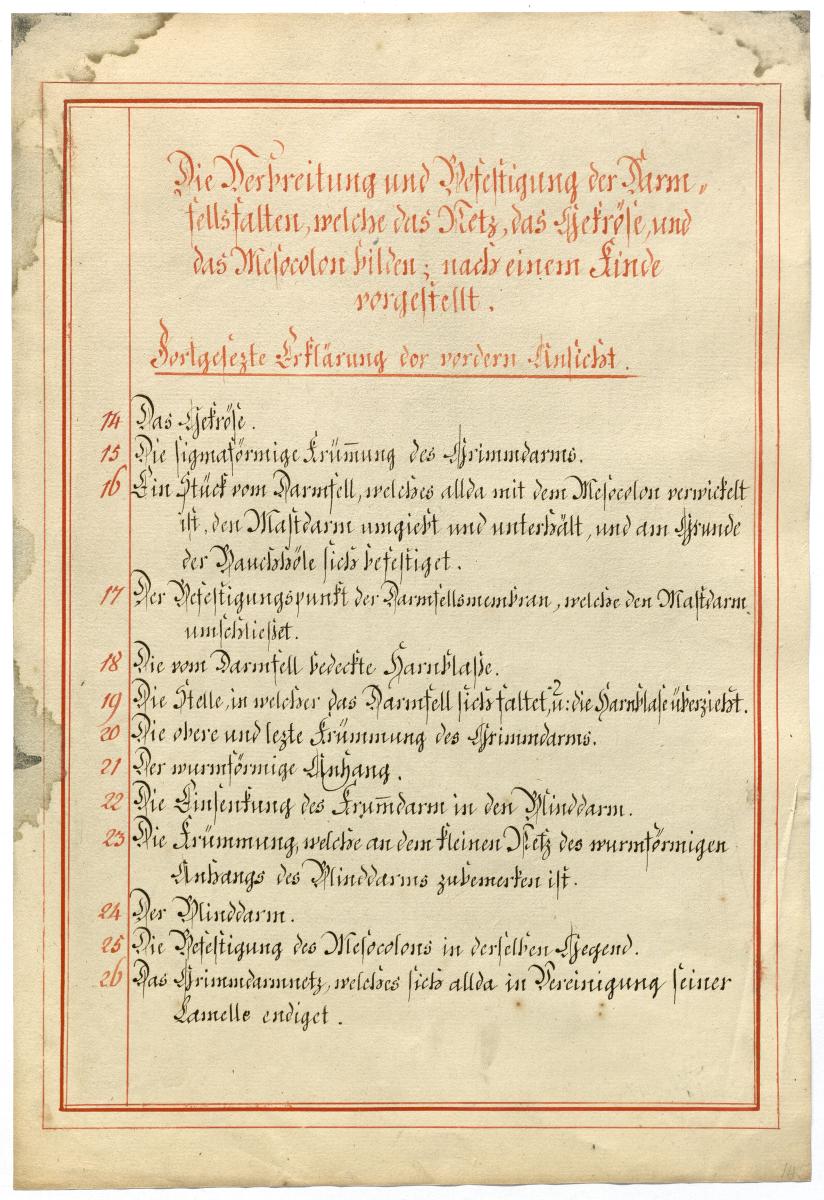 Die Verbreitung und Befestigung der Darm„
fellsfalten, welche das Netz, das Gekröse, und
das Mesocolon bilden; nach einem Kinde
vorgestellt.
Fortgesezte Erklärung der vordern Ansicht.
14 Das Gekröse.
15 Die sigmaförmige Krüm̅ung des Grimmdarms.
16 Ein Stück vom Darmfell, welches allda mit dem Mesocolon verwickelt
ist, den Mastdarm umgiebt und unterhält, und am Grunde
der Bauchhöle sich befestiget.
17 Der Befestigungspunkt der Darmfellsmembran, welche den Mastdarm
umschließet.
18 Die vom Darmfell bedeckte Harnblaße.
19 Die Stelle, in welcher das Darmfell sich faltet, u: die Harnblase überzieht.
20 Die obere und lezte Krümmung des Grimmdarms.
21 Der wurmförmige Anhang.
22 Die Einsenkung des Krum̅darm in den Blinddarm.
23 Die Krümmung, welche an dem kleinen Netz des wurmförmigen
Anhangs des Blinddarms zubemerken ist.
24 Der Blinddarm.
25 Die Befestigung des Mesocolons in derselben Gegend.
26 Das Grimmdarmnetz, welches sich allda in Vereinigung seiner
Lamelle endiget.